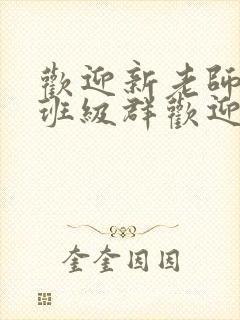 歡迎新老師
班級群歡迎
奎奎因因